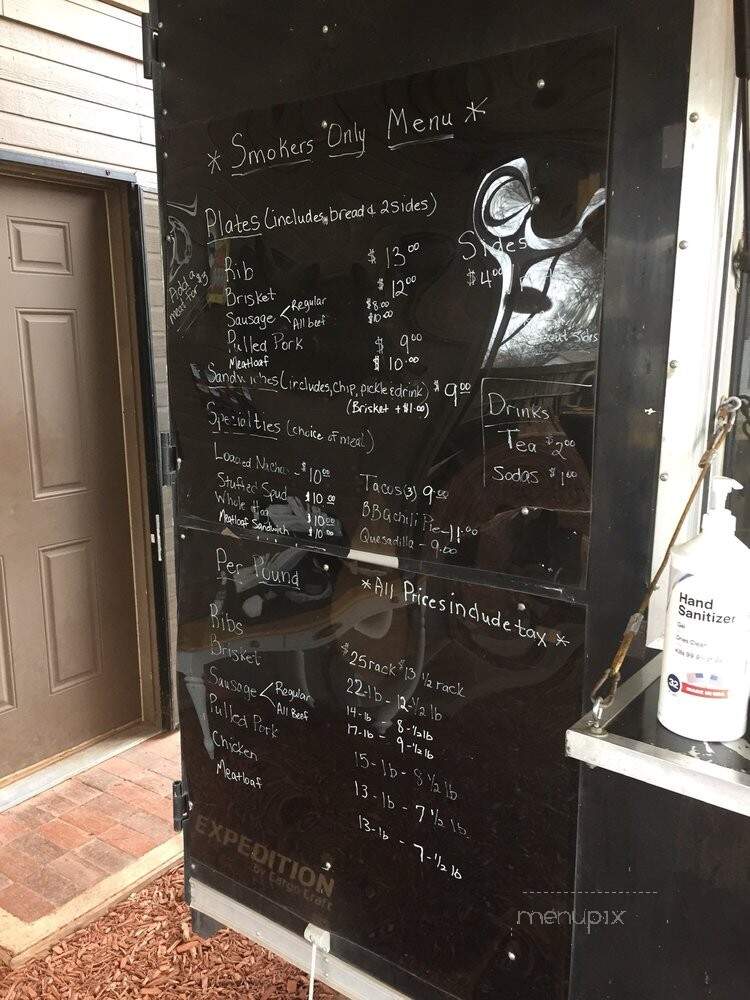 * Smokers Only Menu *
Plates (includes bread & 2 sides)
Add a meat for $3
Rib $13.00
Brisket $12.00
Sausage < Regular $8.00
All beef $10.00
Pulled Pork $9.00
Meatloaf $10.00
Sides
$4.00
Sandwiches (includes, chip, pickle & drink) $9.00
(Brisket + $1.00)
Specialties (choice of meat)
Loaded Nachos - $10.00
Stuffed Spud $10.00
Whole $10.00
Meatloaf Sandwich $10.00
Tacos (3) 9.00
BBQ chili Pie - 11.00
Quesadilla - 9.00
Drinks
Tea $2.00
Sodas $1.00
Per Pound
*All Prices include tax *
Ribs $25 rack $13 1/2 rack
Brisket 22-lb - 12-1/2 lb
Sausage < Regular 14-lb - 8-1/2 lb
All Beef 17-lb - 9-1/2 lb
Pulled Pork 15-lb - 8 1/2 lb
Chicken 13-lb - 7 1/2 lb
Meatloaf 13-lb - 7-1/2 lb
EXPEDITION
by Cargo Craft
Hand
Sanitizer
Gel
32
MADE IN USA
menupix